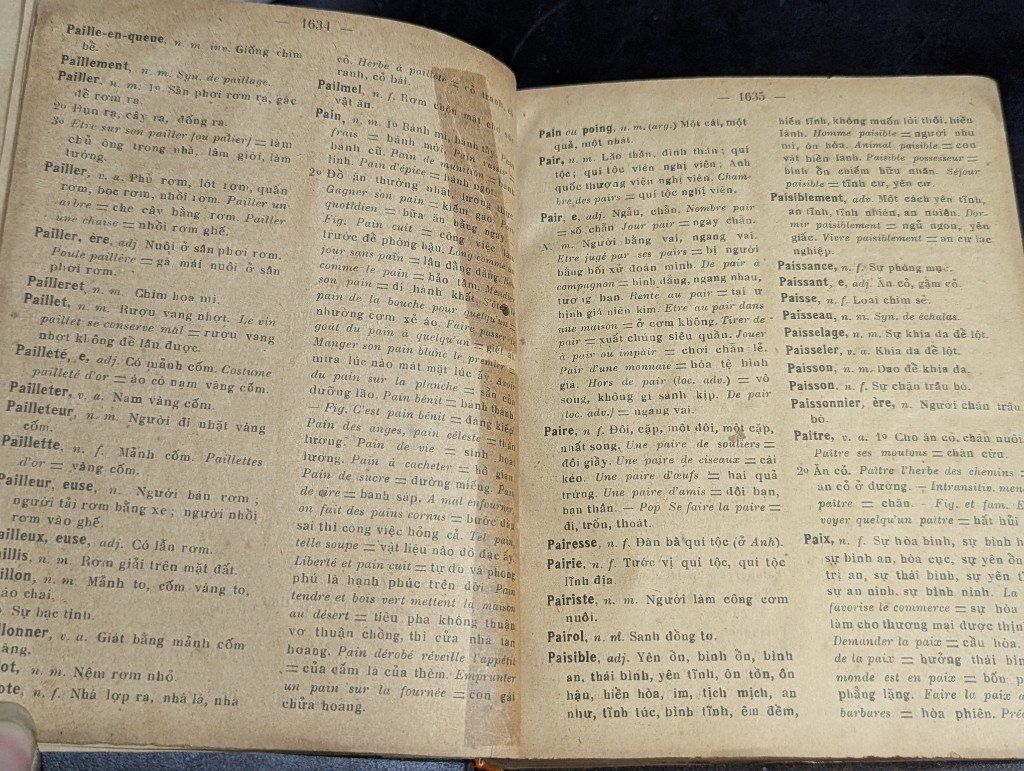 — 1634 —
Paille-en-queue, n. m. inv. Giống chim
bể.
Paillement, n. m. Syn. de paillage.
Pailler, n. m. 1º Sân phơi rơm ra, gác
để rơm ra.
2º Đụn ra, cây ra, đống ra.
3º Etre sur son pailler [ou palier] = làm
chủ ông trong nhà, làm giỏi, làm
tướng.
Pailler, v. a. Phủ rơm, lót rơm, quấn
rơm, bọc rơm, nhồi rơm. Pailler un
arbre = che cây bằng rơm. Pailler
une chaise = nhồi rơm ghế.
Pailler, ère, adj Nuôi ở sân phơi rơm.
Poule paillère = gà mái nuôi ở sân
phơi rơm.
Pailleret, n. m. Chim họa mi.
Paillet, n. m. Rượu vang nhợt. Le vin
paillet se conserve mal = rượu vang
nhợt không để lâu được.
Pailleté, e, adj. Có mảnh cốm. Costume
pailleté d'or = áo có nạm vàng cốm.
Pailleter, v. a. Nạm vàng cốm.
Pailleteur, n. m. Người đi nhặt vàng
cốm.
Paillette, n. f. Mảnh cốm. Paillettes
d'or = vàng cốm.
Pailleur, euse, n. Người bán rơm;
người tải rơm bằng xe; người nhồi
rơm vào ghế.
ailleux, euse, adj. Có lẫn rơm.
aillis, n. m. Rơm giải trên mặt đất.
aillon, n. m. Mảnh to, cốm vàng to,
áo chai.
Sự bạc tình.
llonner, v. a. Giát bằng mảnh cốm
àng.
lot, n. m. Nệm rơm nhỏ.
ote, n. f. Nhà lợp rạ, nhà lá, nhà
cỏ. Herbe à paillote = cỏ tranh, cỏ
ranh, cỏ bái.
Pailmel, n. f. Rơm chộn mật cho
vật ăn.
Pain, n. m. 1º Bánh mì, bánh tây.
frais = bánh mới. Pain rassis =
bánh cũ. Pain de munition = bánh
lính. Pain d'épice = bánh ngọt.
2º Đồ ăn thường nhật, lương thực.
Gagner son pain = kiếm gạo.
quotdien = bữa ăn hàng ngày.
Fig. Pain cuit = công việc làm
trước để phòng hậu. Long comme un
jour sans pain = lâu dằng dặc.
comme le pain = hảo tâm. Mendier
son pain = đi hành khất. S'ôter le
pain de la bouche pour quelqu'un =
nhường cơm xẻ áo. Faire passer le
goût du pain à quelqu'un = giết ai
Manger son pain blanc le premier =
mưa lúc nào mát mặt lúc ấy. Avoir
du pain sur la planche = sẵn của
dưỡng lão. Pain bénit = bánh thánh
— Fig. C'est pain bénit = đáng kiếp
Pain des anges, pain céleste = thần
lương. Pain de vie = sinh hoạt
lương. Pain à cacheter = hồ gian.
Pain de sucre = đường miếng. Pain
de cire = bánh sáp. A mal enfourner
on fait des pains cornus = bước đầu
sai thì công việc hỏng cả. Tel pain,
telle soupe = vật liệu nào đồ đạc ấy.
Liberté et pain cuit = tự do và phong
phú là hạnh phúc trên đời. Pain
tendre et bois vert mettent la maison
au désert = tiêu pha không thuận
vợ thuận chồng, thì cửa nhà tan
hoang. Pain dérobé réveille l'appétit
= của cấm là của thèm. Emprunter
un pain sur la fournée = con gái
chửa hoang.
— 1635 —
Pain ou poing, n. m. (arg.) Một cái, một
quả, một nhát.
Pair, n. m. Lão thần, đình thần; quí
tộc; quí tộc viện nghị viên; Anh
quốc thượng viện nghị viên. Cham-
bre des pairs = quí tộc nghị viện.
Pair, e, adj. Ngẫu, chẵn. Nombre pair
= số chẵn Jour pair = ngày chẵn.
N. m. Người bằng vai, ngang vai.
Etre jugé par ses pairs = bị người
bằng bối xử đoán mình. De pair à
compagnon = bình đẳng, ngang nhau,
tương bạn. Rente au pair = tai tư
bình giá niên kim. Etre au pair dans
une maison = ở cơm không. Tirer de
pair = xuất chúng siêu quần. Jouer
à pair ou impair = chơi chẵn lẻ.
Pair d'une monnaie = hóa tệ bình
gia. Hors de pair (loc. adv.) = vô
song, không gì sánh kịp. De pair
(loc. adv.) = ngang vai.
Paire, n. f. Đôi, cặp, một đôi, một cặp,
nhất song. Une paire de souliers =
đôi giầy. Une paire de ciseaux = cái
kéo. Une paire d'œufs = hai quả
trứng. Une paire d'amis = đôi bạn,
bạn thân. — Pop Se faire la paire =
đi, trốn, thoát.
Pairesse, n. f. Đàn bà quí tộc (ở Anh).
Pairie, n. f. Tước vị quí tộc, quí tộc
lĩnh địa.
Pairiste, n. m. Người làm công cơm
nuôi.
Pairol, n. m. Sanh đồng to.
Paisible, adj. Yên ổn, bình ổn, bình
an, thái bình, yên tĩnh, ôn tồn, ôn
hậu, hiền hòa, im, tịch mịch, an
như, tĩnh túc, bình tĩnh, êm đềm,
hiền tĩnh, không muốn lôi thôi, hiền
lành. Homme paisible = người nhu
mì, ôn hòa. Animal paisible = con
vật hiền lành. Paisible possesseur =
bình ổn chiếm hữu nhân. Séjour
paisible = tĩnh cư, yên cư.
Paisiblement, adv. Một cách yên tĩnh,
an tĩnh, tĩnh nhiên, an nhiên. Dor-
mir paisiblement = ngủ ngon, yên
giấc. Vivre paisiblement = an cư lạc
nghiệp.
Paissance, n. f. Sự phóng mục.
Paissant, e, adj. Ăn cỏ, gậm cỏ.
Paisse, n. f. Loài chim sẻ.
Paisseau, n. m. Syn. de échalas.
Paisselage, n. m. Sự khía da để lột.
Paisseler, v. a. Khía da để lột.
Paisson, n. m. Dao để khía da.
Paisson, n. f. Sự chăn trâu bò.
Paissonnier, ère, n. Người chăn trâu
bò.
Paître, v. a. 1º Cho ăn cỏ, chăn nuôi
Paître ses moutons = chăn cừu.
2º Ăn cỏ. Paître l'herbe des chemins =
ăn cỏ ở đường. — Intransitiv. men
paître = chăn. — Fig. et fam. E
voyer quelqu'un paître = bắt hủi
Paix, n. f. Sự hòa bình, sự bình h
sự bình an, hòa cục, sự yên ổn
trị an, sự thái bình, sự yên t
sự an ninh, sự bình ninh. La
favorise le commerce = sự hòa
làm cho thương mại được thịn
Demander la paix = cầu hòa.
de la paix = hưởng thái bìn
monde est en paix = bốn p
phẳng lặng. Faire la paix a
barbares = hòa phiên. Pré